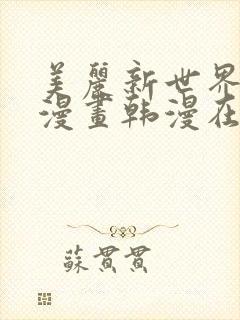 美麗新世界
漫畫韩漫在
蘇貫貫